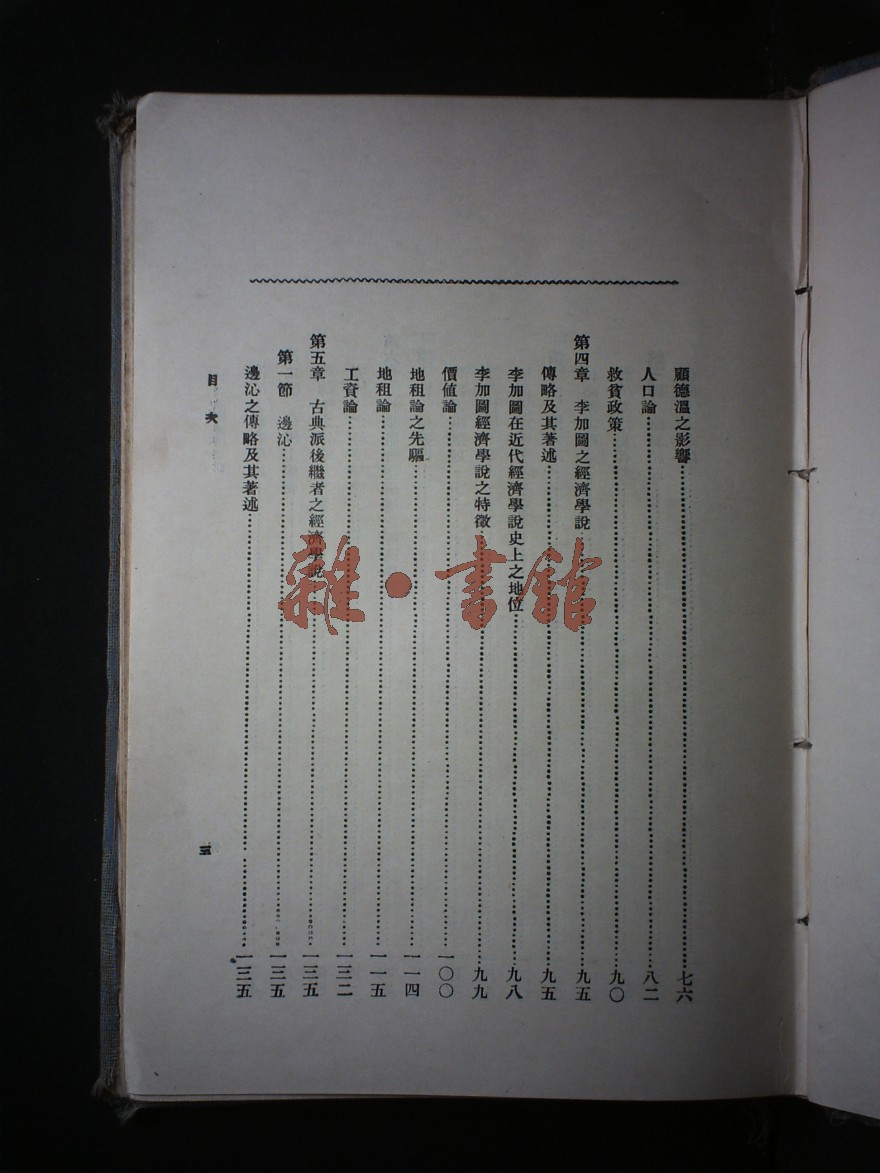 顧德溫之影響………七六
人口論………八二
救貧政策………九〇
第四章　李加圖之經濟學說………九五
傳略及其著述………九五
李加圖在近代經濟學說史上之地位………九八
李加圖經濟學說之特徵………九九
價值論………一〇〇
地租論之先驅………一一四
地租論………一一五
工資論………一三二
第五章　古典派後繼者之經濟學說………一三五
第一節　邊沁………一三五
邊沁之傳略及其著述………一三五
目次
三
雜·書館